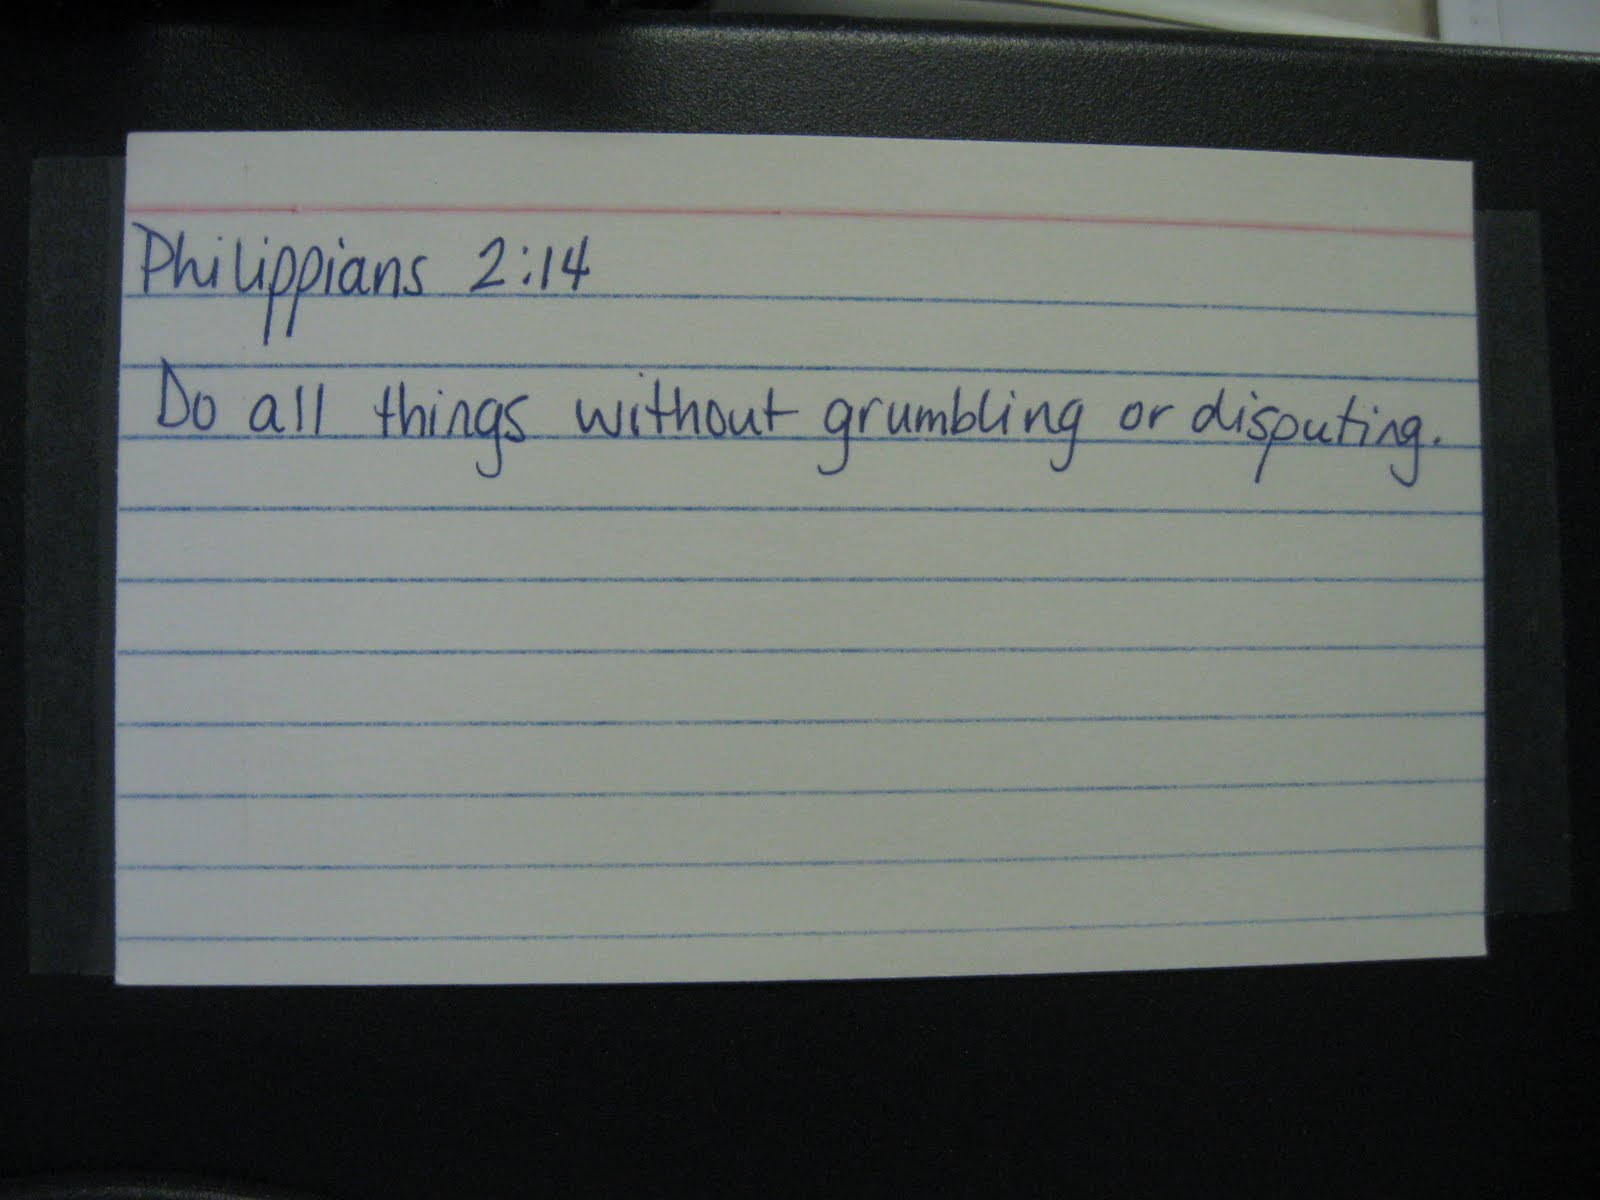 Philippians 2:14
Do all things without grumbling or disputing.